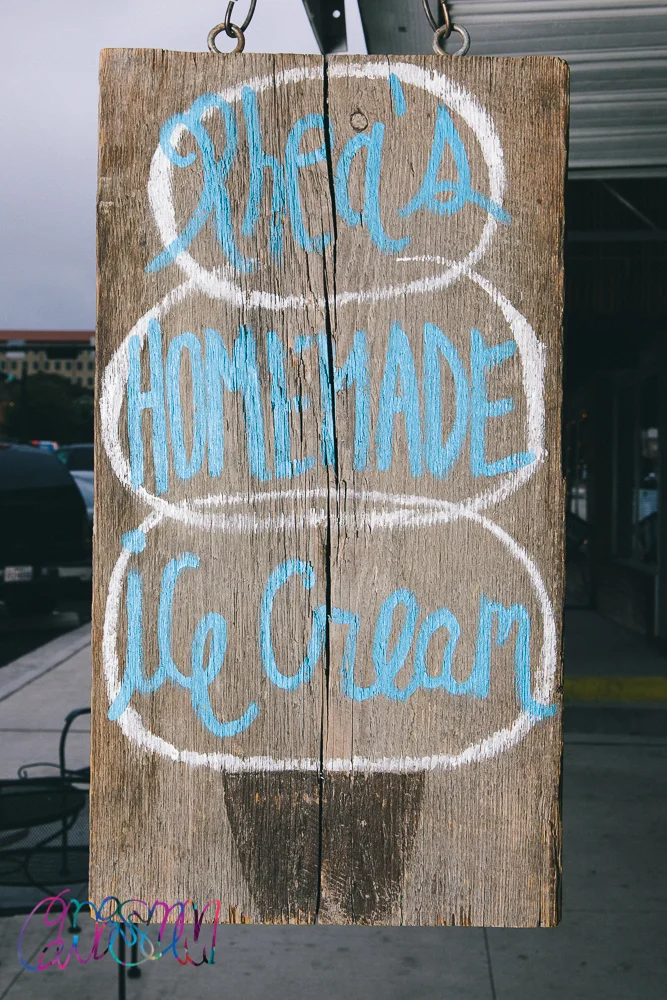 Rhea's
HOMEMADE
ice Cream